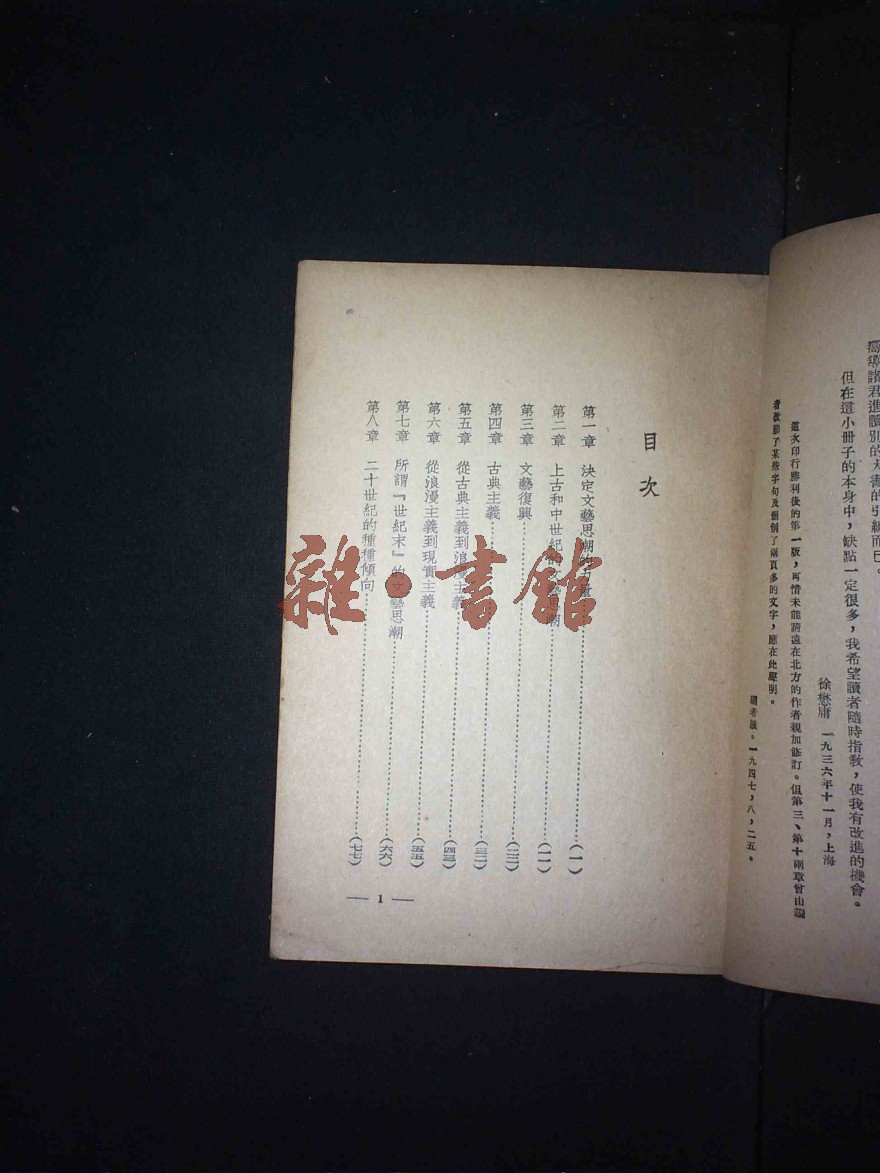 但在這小冊子的本身中，缺點一定很多，我希望讀者隨時指教，使我有改進的機會。
徐懋庸　一九三六年十一月，上海
這次印行勝利後的第一版，可惜未能請遠在北方的作者親加修訂。但第三、第十兩章曾由編
者改動了某些字句及刪削了兩頁多的文字，應在此聲明。
編者識。一九四七，八，二五。
目次
第一章　決定文藝思潮的力量（一）
第二章　上古和中世紀的文藝思潮（一一）
第三章　文藝復興（二二）
第四章　古典主義（三二）
第五章　從古典主義到浪漫主義（四三）
第六章　從浪漫主義到現實主義（五五）
第七章　所謂『世紀末』的文藝思潮（六六）
第八章　二十世紀的種種傾向（七七）
— 1 —
雜·書館